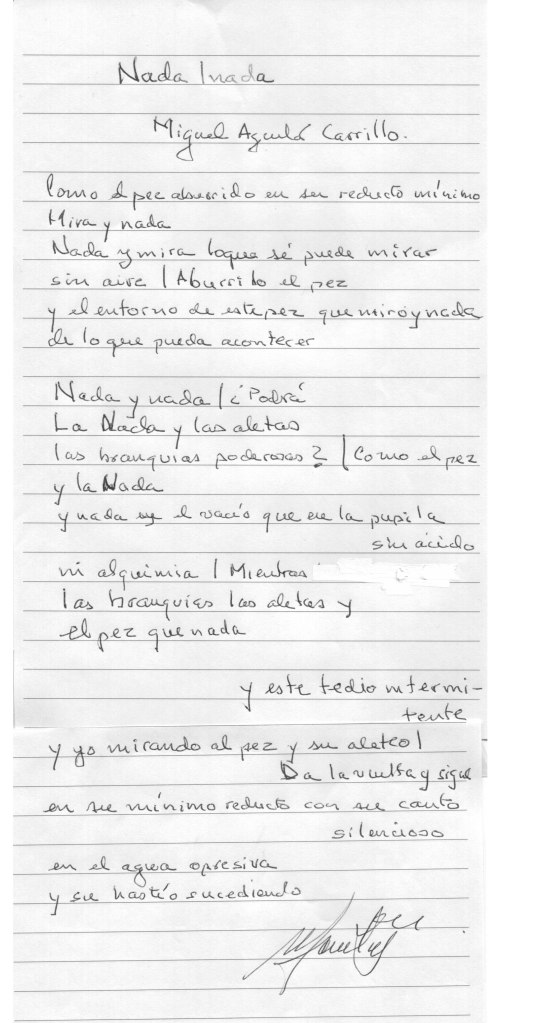 Nada / nada
Miguel Aguilar Carrillo.
Como el pez aburrido en su reducto mínimo
Mira y nada
Nada y mira loque sé puede mirar
sin aire / Aburrido el pez
y el entorno de este pez que miro y nada
de lo que pueda acontecer
Nada y nada / ¿Podrá
La Nada y las aletas
las branquias poderosas? / Como el pez
y la Nada
y nada el vacío que en la pupila
sin ácido
ni alquimia / Mientras
las branquias las aletas y
el pez que nada
y este tedio intermi-
tente
y yo mirando al pez y su aleteo /
Da la vuelta y sigue
en su mínimo reducto con su canto
silencioso
en el agua opresiva
y su hastío sucediendo